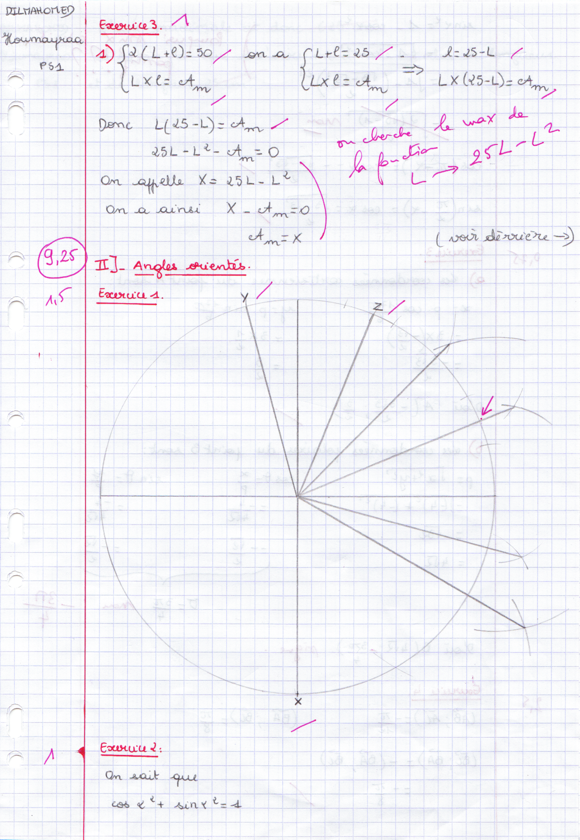 DILMAHOMED
Houmayraa
PS1
Exercice 3. 1
1) { 2(L+l) = 50 on a { L+l = 25 l = 25-L
L×l = Am L×l = Am ⟹ L×(25-L) = Am
Donc L(25-L) = Am
25L - L² - Am = 0
On appelle X = 25L - L²
On a ainsi X - Am = 0
Am = X
on cherche le max de
la fonction
L → 25L - L²
(voir dérrière →)
9,25
II]_ Angles orientés.
1,5
Exercice 1.
Y
Z
X
1
Exercice 2:
On sait que
cos x² + sin x² = 1